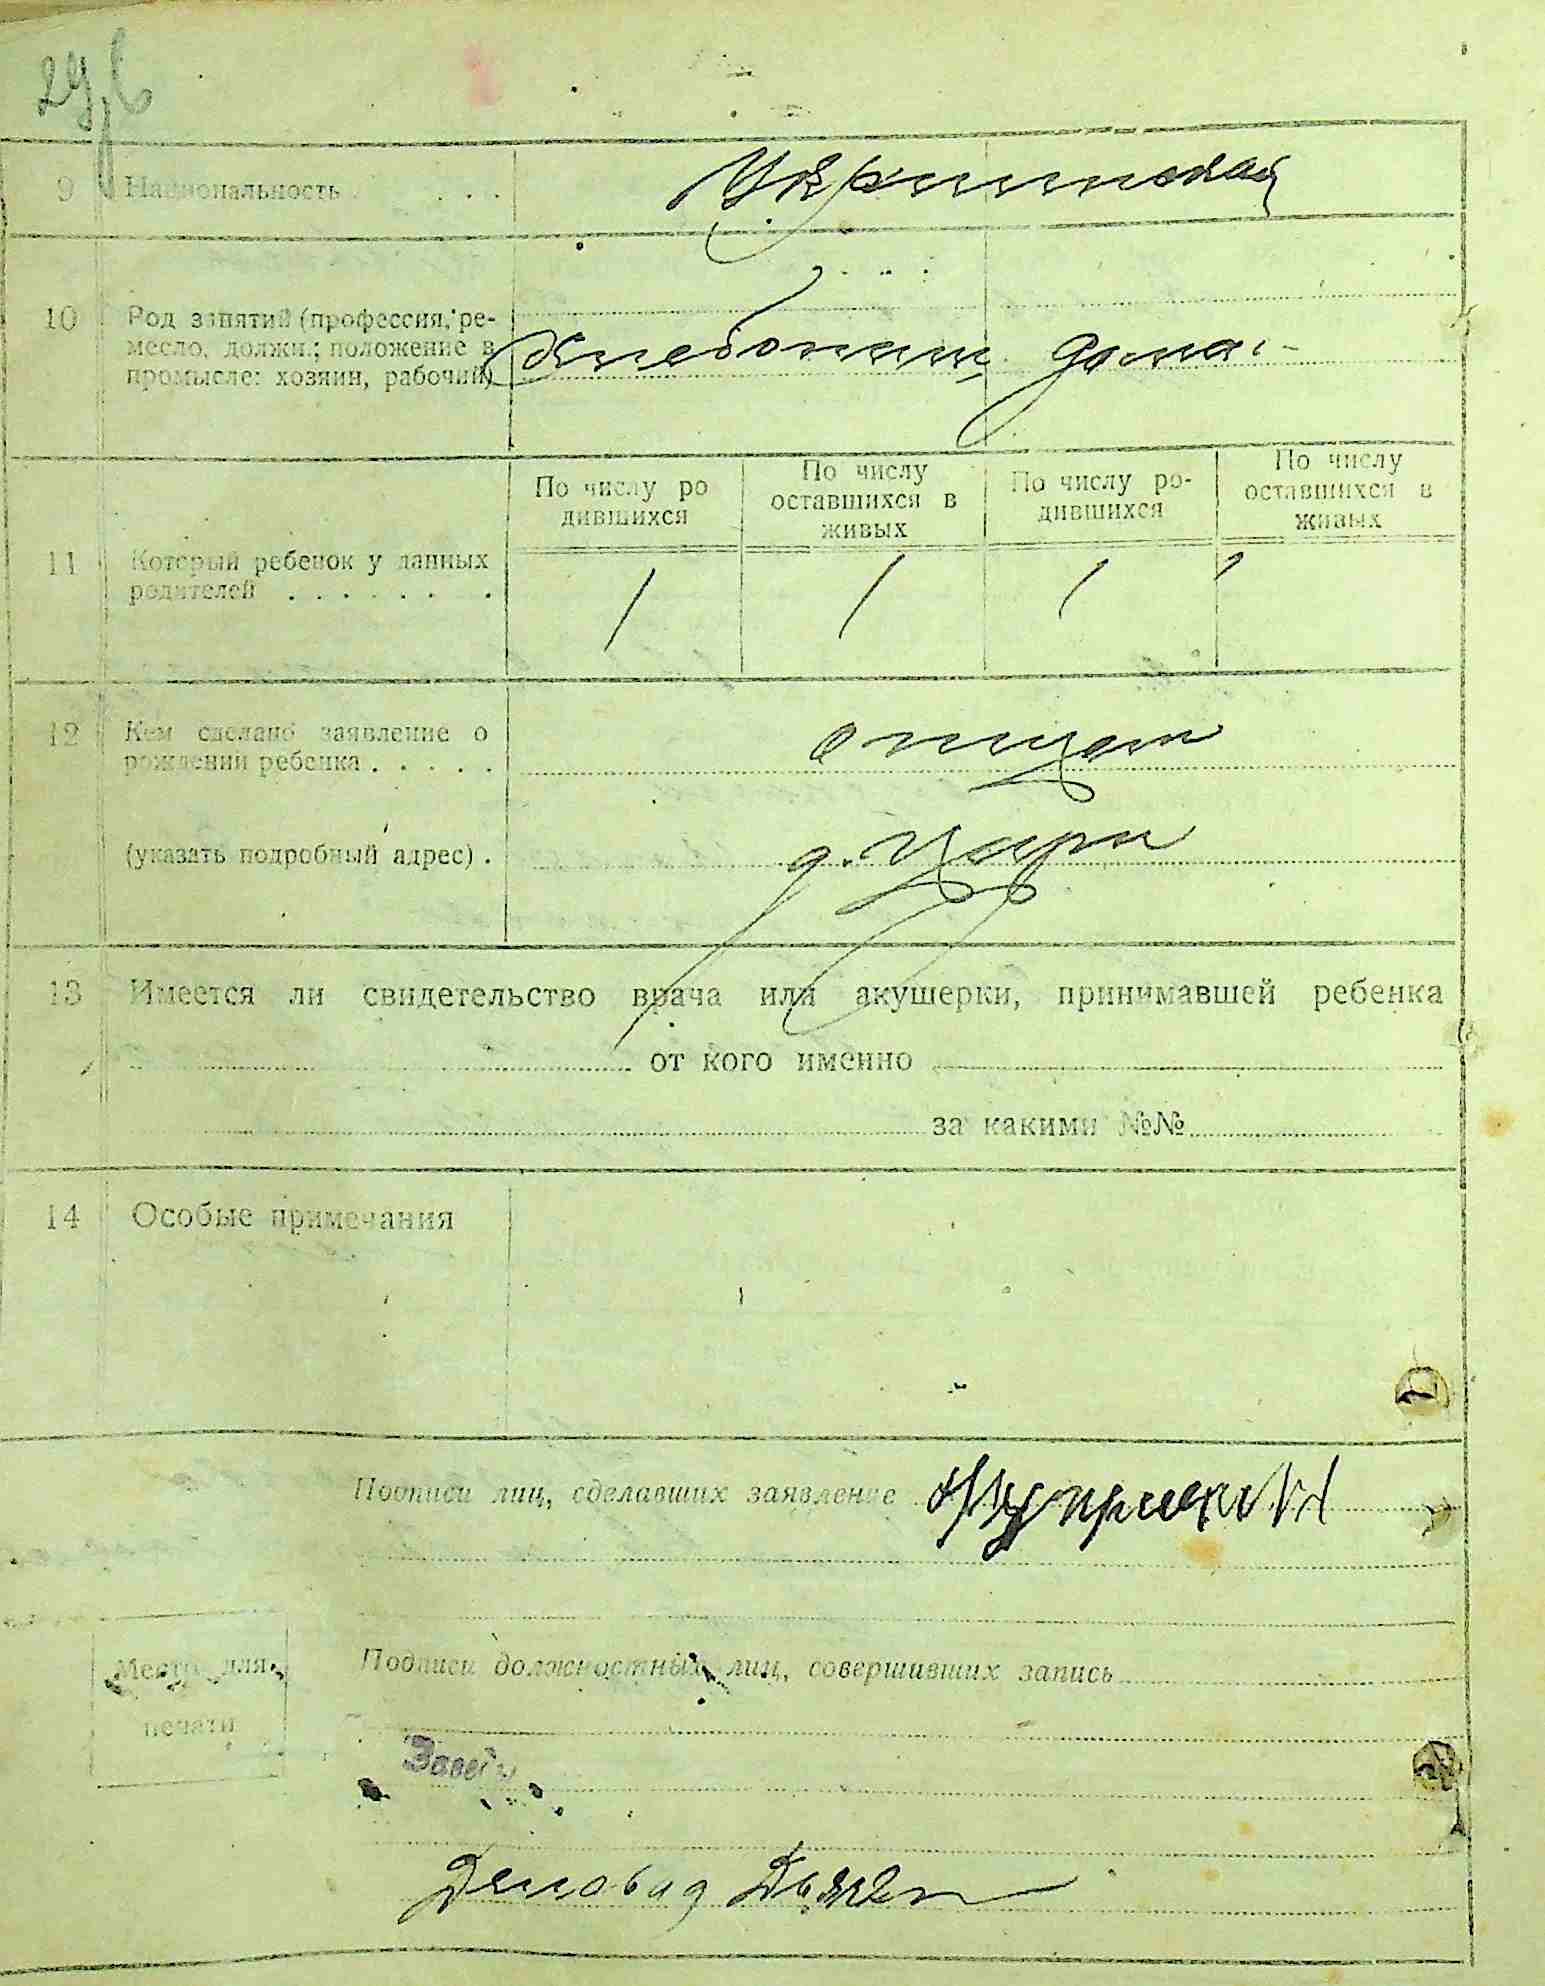 9 Национальность . . . . Украинская
10 Род занятий (профессия, ре-
месло, должн.; положение в
промысле: хозяин, рабочий)
Хлебопаш. дома
По числу ро
дившихся
По числу
оставшихся в
живых
По числу ро-
дившихся
По числу
оставшихся в
живых
11 Который ребенок у данных
родителей . . . . . . .
1 1 1 1
12 Кем сделано заявление о
рождении ребенка . . . . .
отцом
(указать подробный адрес) .
д.
13 Имеется ли свидетельство врача или акушерки, принимавшей ребенка
от кого именно
за какими №№
14 Особые примечания
Подписи лиц, сделавших заявление
Место для
печати
Подписи должностных лиц, совершивших запись